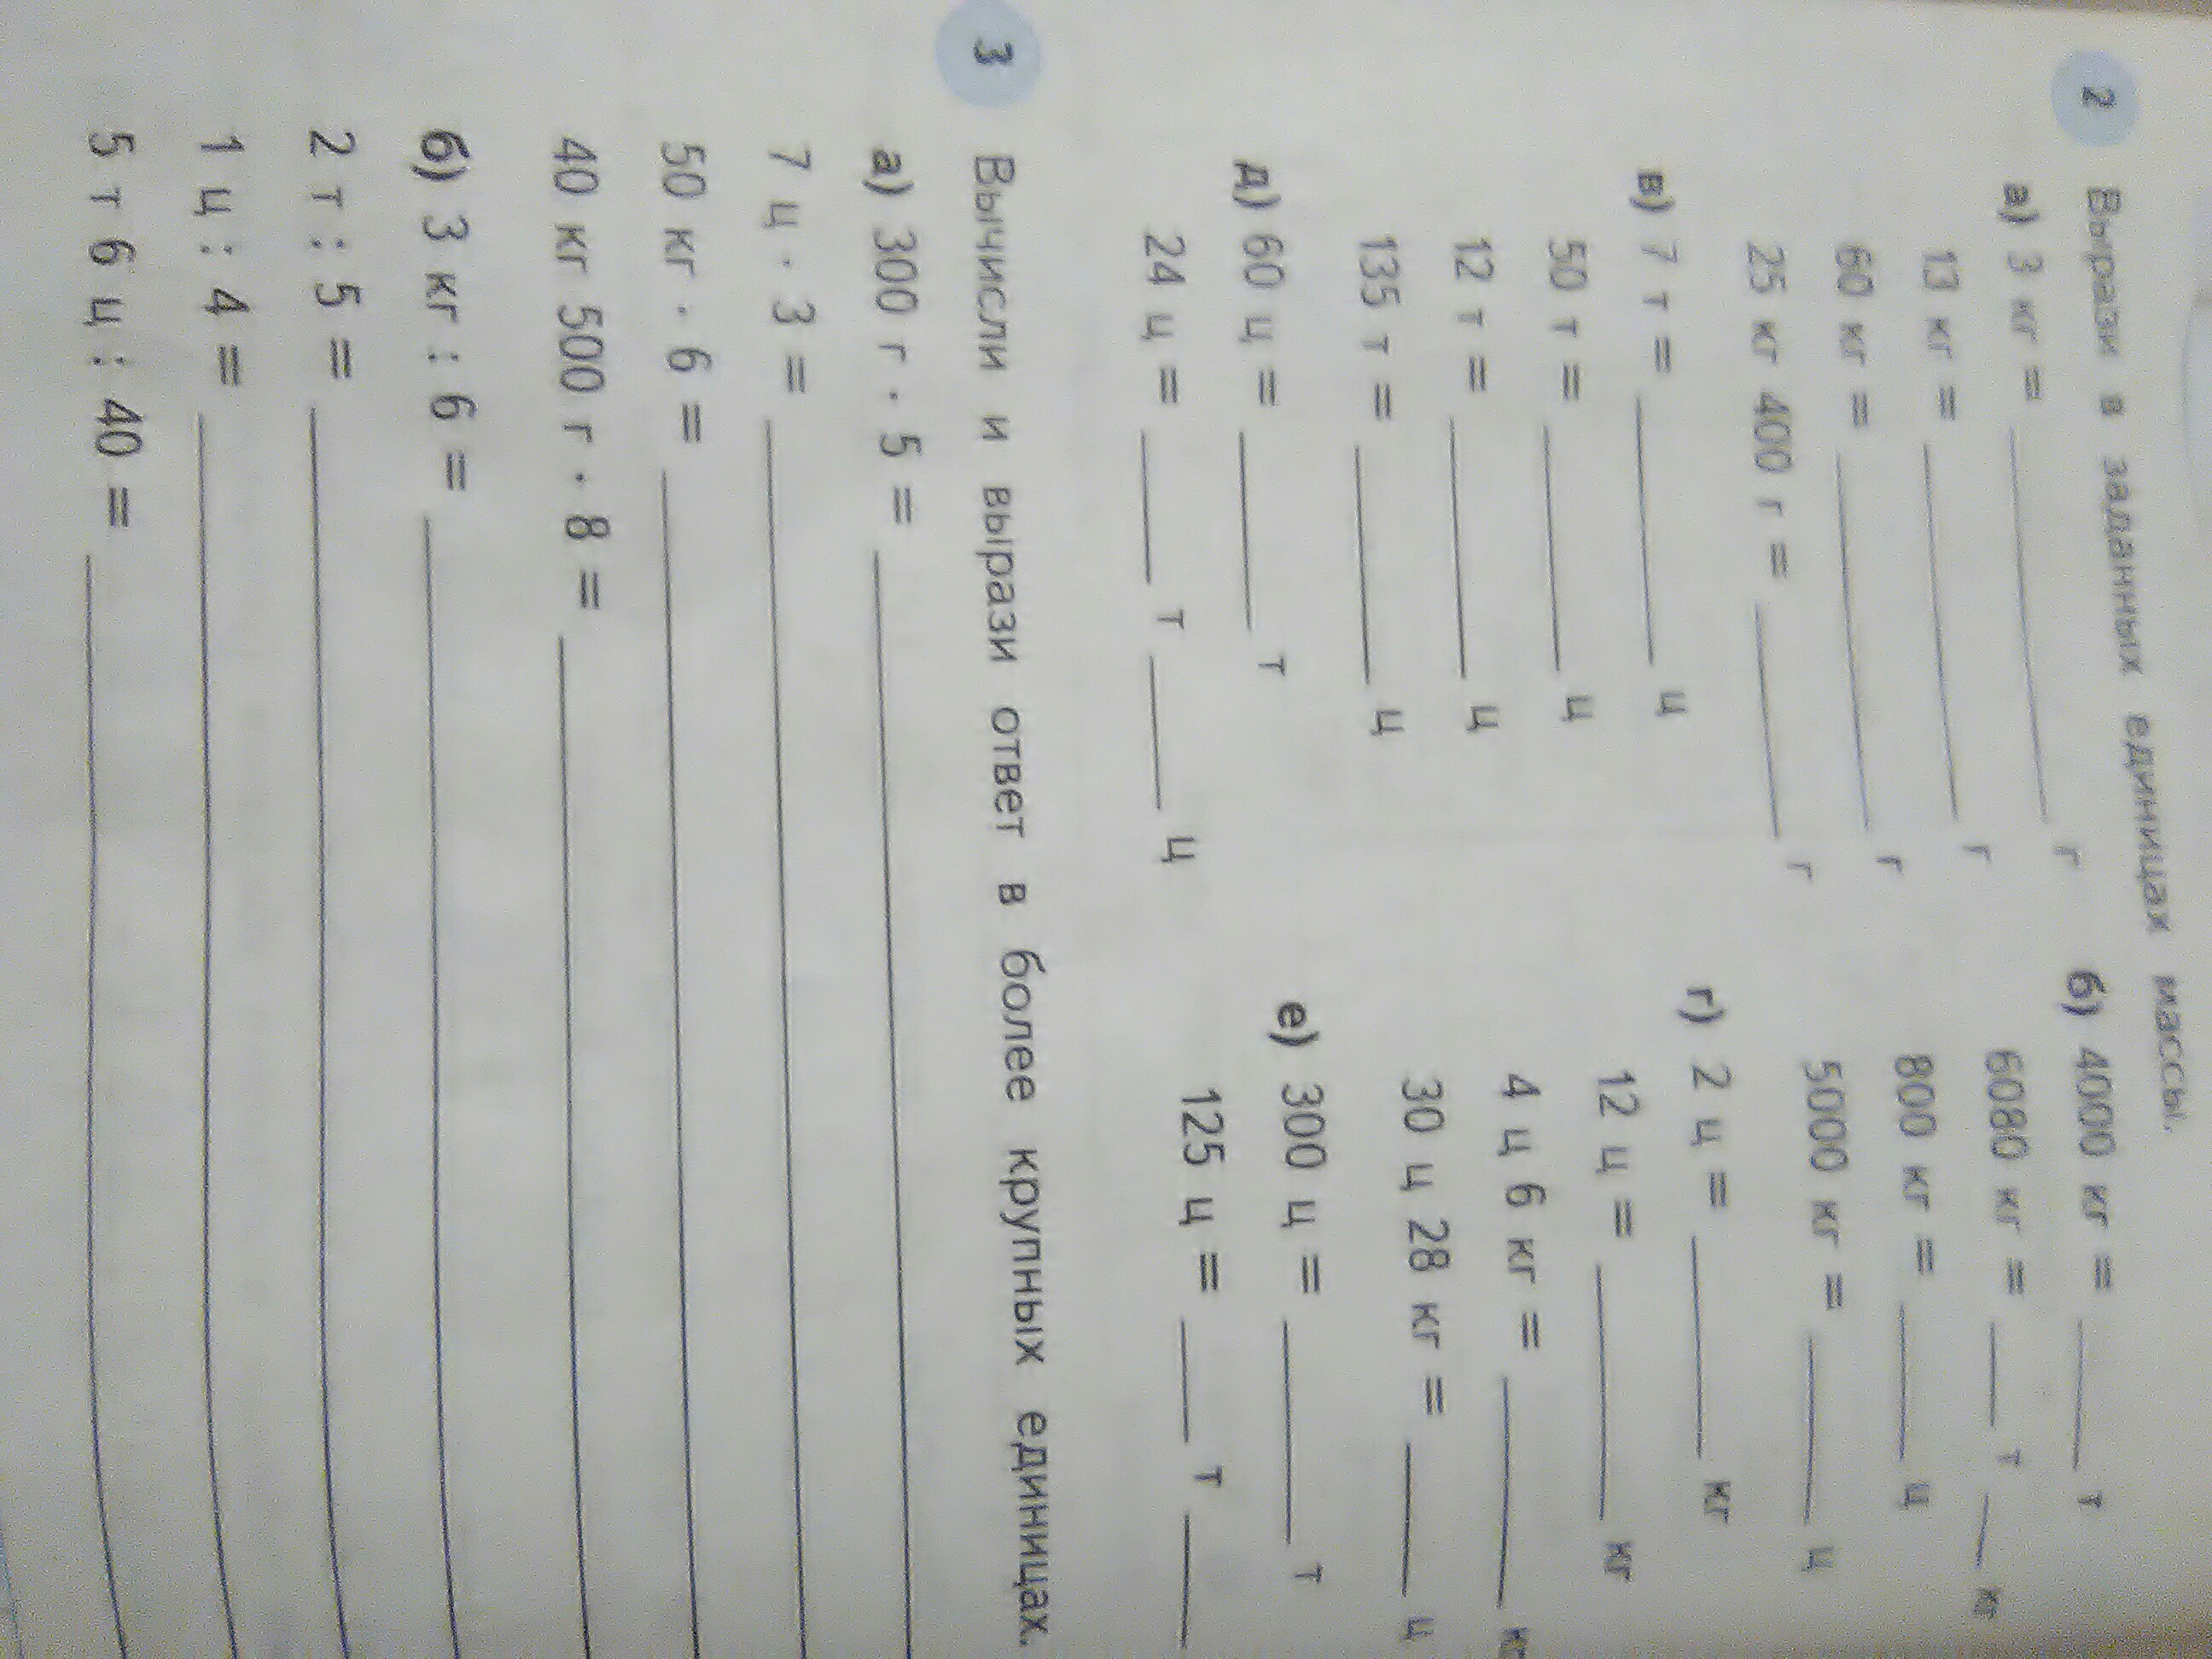 2 Вырази в заданных единицах массы.
а) 3 кг = ____ г
13 кг = ____ г
60 кг = ____ г
25 кг 400 г = ____ г
б) 4000 кг = ____ т
6080 кг = ____ т ____ кг
800 кг = ____ ц
5000 кг = ____ ц
в) 7 т = ____ ц
50 т = ____ ц
12 т = ____ ц
135 т = ____ ц
г) 2 ц = ____ кг
12 ц = ____ кг
4 ц 6 кг = ____ кг
30 ц 28 кг = ____ ц
д) 60 ц = ____ т
24 ц = ____ т ____ ц
е) 300 ц = ____ т
125 ц = ____ т ____
3 Вычисли и вырази ответ в более крупных единицах.
а) 300 г · 5 = ____
7 ц · 3 = ____
50 кг · 6 = ____
40 кг 500 г · 8 = ____
б) 3 кг : 6 = ____
2 т : 5 = ____
1 ц : 4 = ____
5 т 6 ц : 40 = ____